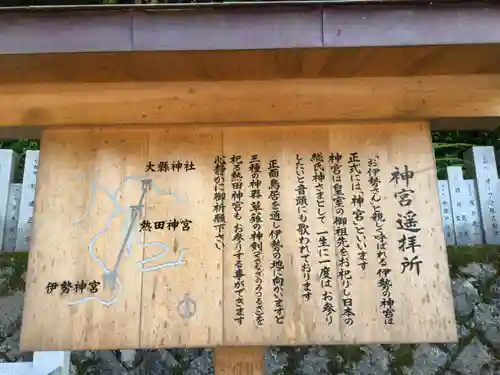 神宮遥拝所
「お伊勢さん」と親しく呼ばれる伊勢の神宮は
正式には、「神宮」といいます
神宮は皇室の御祖先をお祀りし日本の
総氏神さまとして、一生に一度はお参り
したいと音頭にも歌われております
正面鳥居を通し伊勢の地に向いますと
三種の神器 草薙の神剣(くさなぎのみつるぎ)を
祀る熱田神宮をもお参りする事ができます
心静かに御祈願下さい
大縣神社
熱田神宮
伊勢神宮